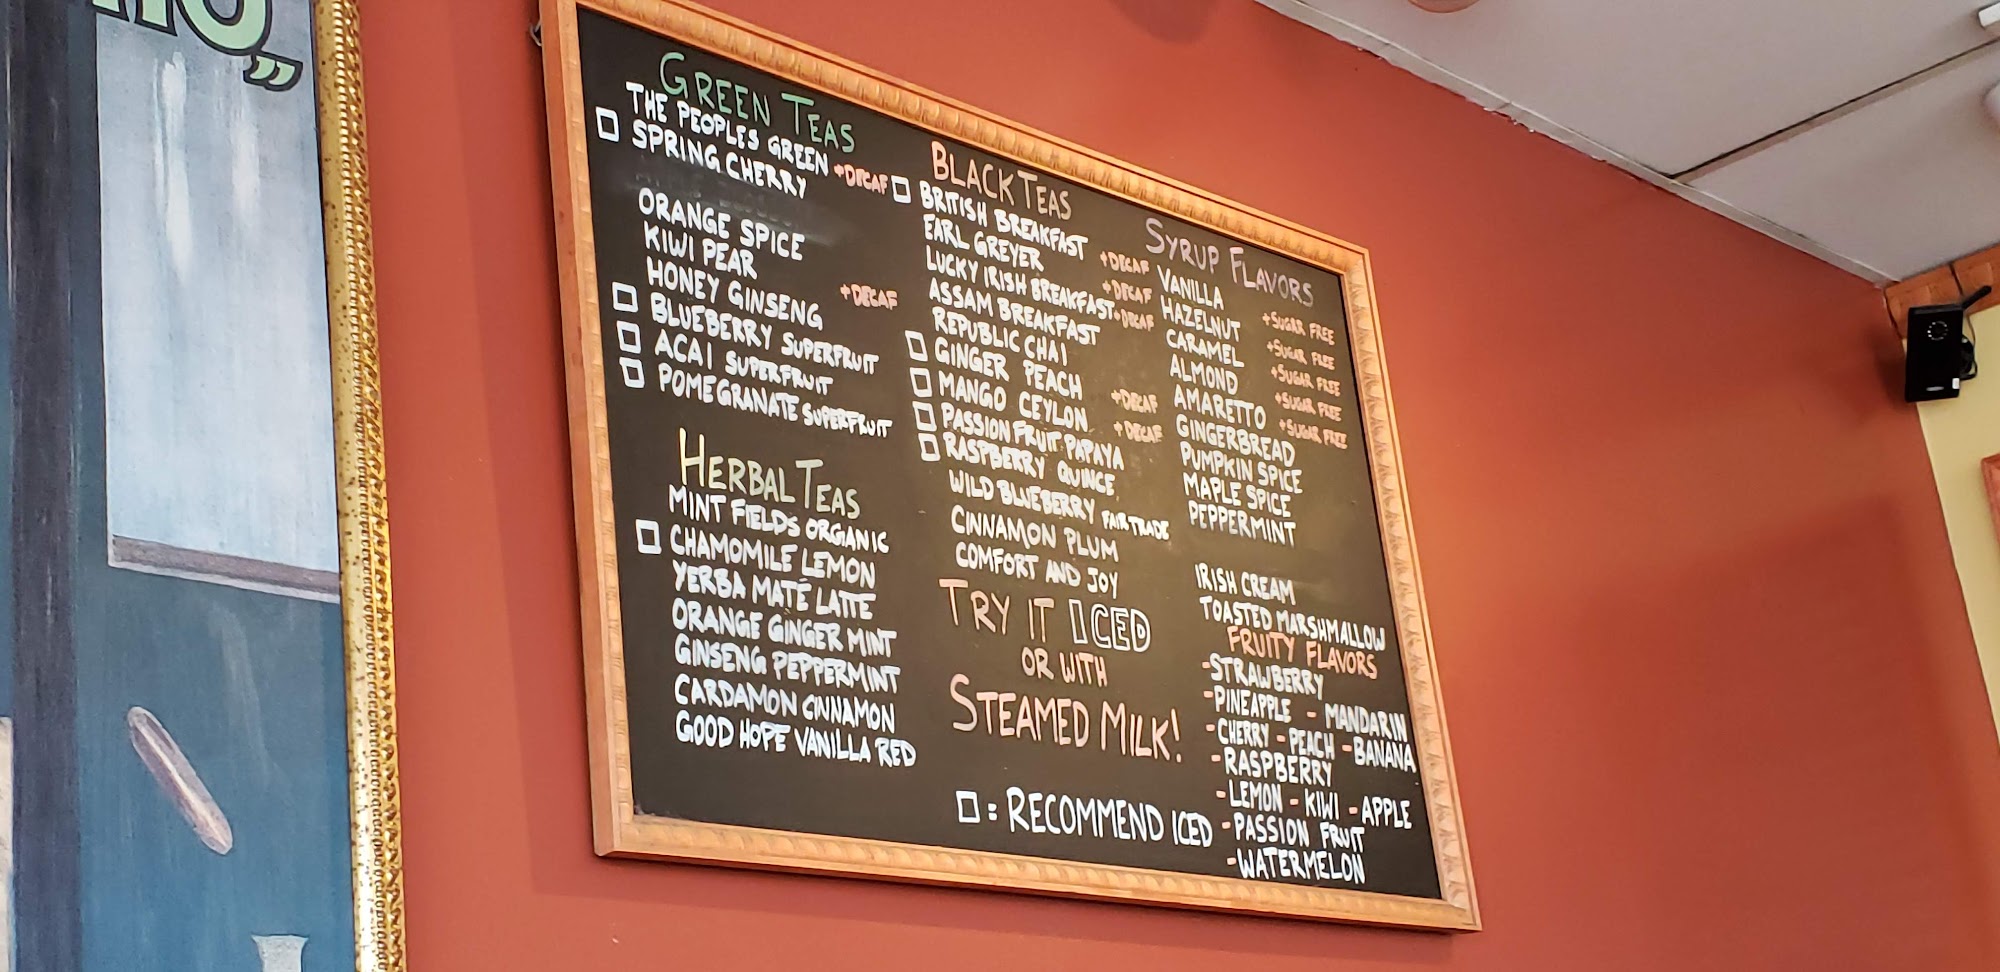 GREEN TEAS
THE PEOPLES GREEN +DECAF
☐ SPRING CHERRY
ORANGE SPICE
KIWI PEAR
HONEY GINSENG +DECAF
☐ BLUEBERRY SUPERFRUIT
☐ ACAI SUPERFRUIT
☐ POMEGRANATE SUPERFRUIT
HERBAL TEAS
MINT FIELDS ORGANIC
☐ CHAMOMILE LEMON
YERBA MATÉ LATTE
ORANGE GINGER MINT
GINSENG PEPPERMINT
CARDAMON CINNAMON
GOOD HOPE VANILLA RED
BLACK TEAS
☐ BRITISH BREAKFAST +DECAF
EARL GREYER +DECAF
LUCKY IRISH BREAKFAST +DECAF
ASSAM BREAKFAST
REPUBLIC CHAI
☐ GINGER PEACH +DECAF
☐ MANGO CEYLON +DECAF
☐ PASSION FRUIT PAPAYA
☐ RASPBERRY QUINCE
WILD BLUEBERRY FAIR TRADE
CINNAMON PLUM
COMFORT AND JOY
TRY IT ICED
OR WITH
STEAMED MILK!
☐ = RECOMMEND ICED
SYRUP FLAVORS
VANILLA +SUGAR FREE
HAZELNUT +SUGAR FREE
CARAMEL +SUGAR FREE
ALMOND +SUGAR FREE
AMARETTO +SUGAR FREE
GINGERBREAD
PUMPKIN SPICE
MAPLE SPICE
PEPPERMINT
IRISH CREAM
TOASTED MARSHMALLOW
FRUITY FLAVORS
-STRAWBERRY
-PINEAPPLE - MANDARIN
-CHERRY - PEACH - BANANA
-RASPBERRY
-LEMON - KIWI - APPLE
-PASSION FRUIT
-WATERMELON